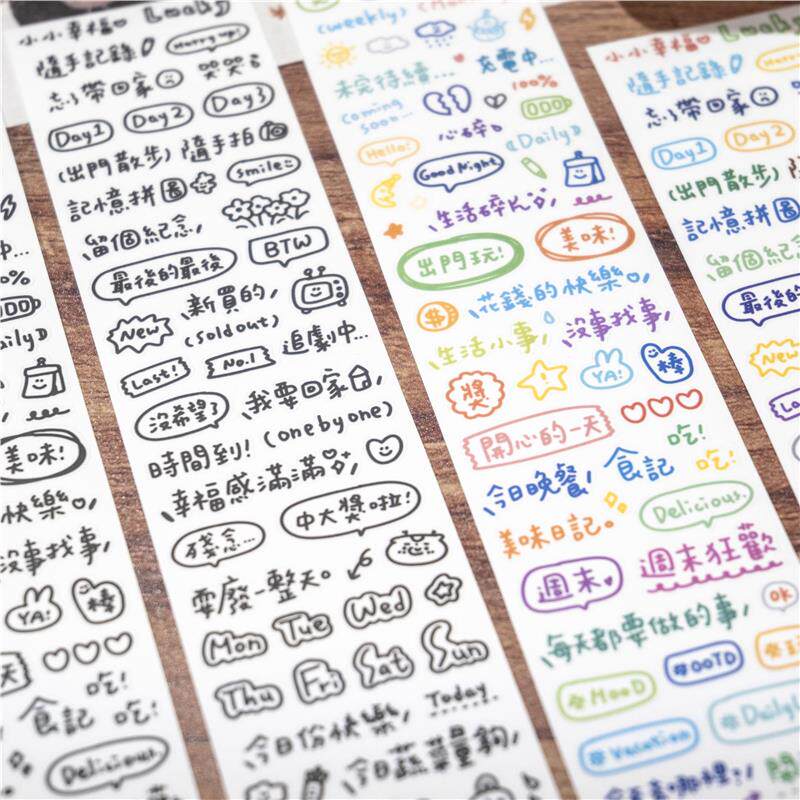 快樂
美味!
沒事找事,
YA!
棒
吃!
食記 吃!
Delicious.
小小幸福
Lucky
隨手記錄
Hurry up!
忘了帶回家
哭哭
Day1
Day2
Day3
(出門散步)
隨手拍
記憶拼圖
smile
留個紀念,
最後的最後
BTW
新買的,
New
(sold out)
Last!
No.1
追劇中...
沒希望了
我要回家
時間到!
(one by one)
幸福感滿滿
殘念...
中大獎啦!
耍廢一整天。
Mon Tue Wed
Thu Fri Sat Sun
Today.
今日份快樂,
今日蔬菜量夠,
(weekly)
未完待續...
充電中...
100%
coming soon...
心碎
Hello!
Good Night
《Daily》
生活碎片
出門玩!
美味!
花錢的快樂
生活小事,
沒事找事,
獎
YA!
棒
開心的一天
今日晚餐,
食記
吃!
吃!
美味日記。
Delicious.
週末
週末狂歡
每天都要做的事,
OK
#MOOD
#OOTD
#Vacation
小小幸福
Lucky
隨手記錄
忘了帶回家
Day1
Day2
(出門散步)
記憶拼圖
留個紀念
最後的
New